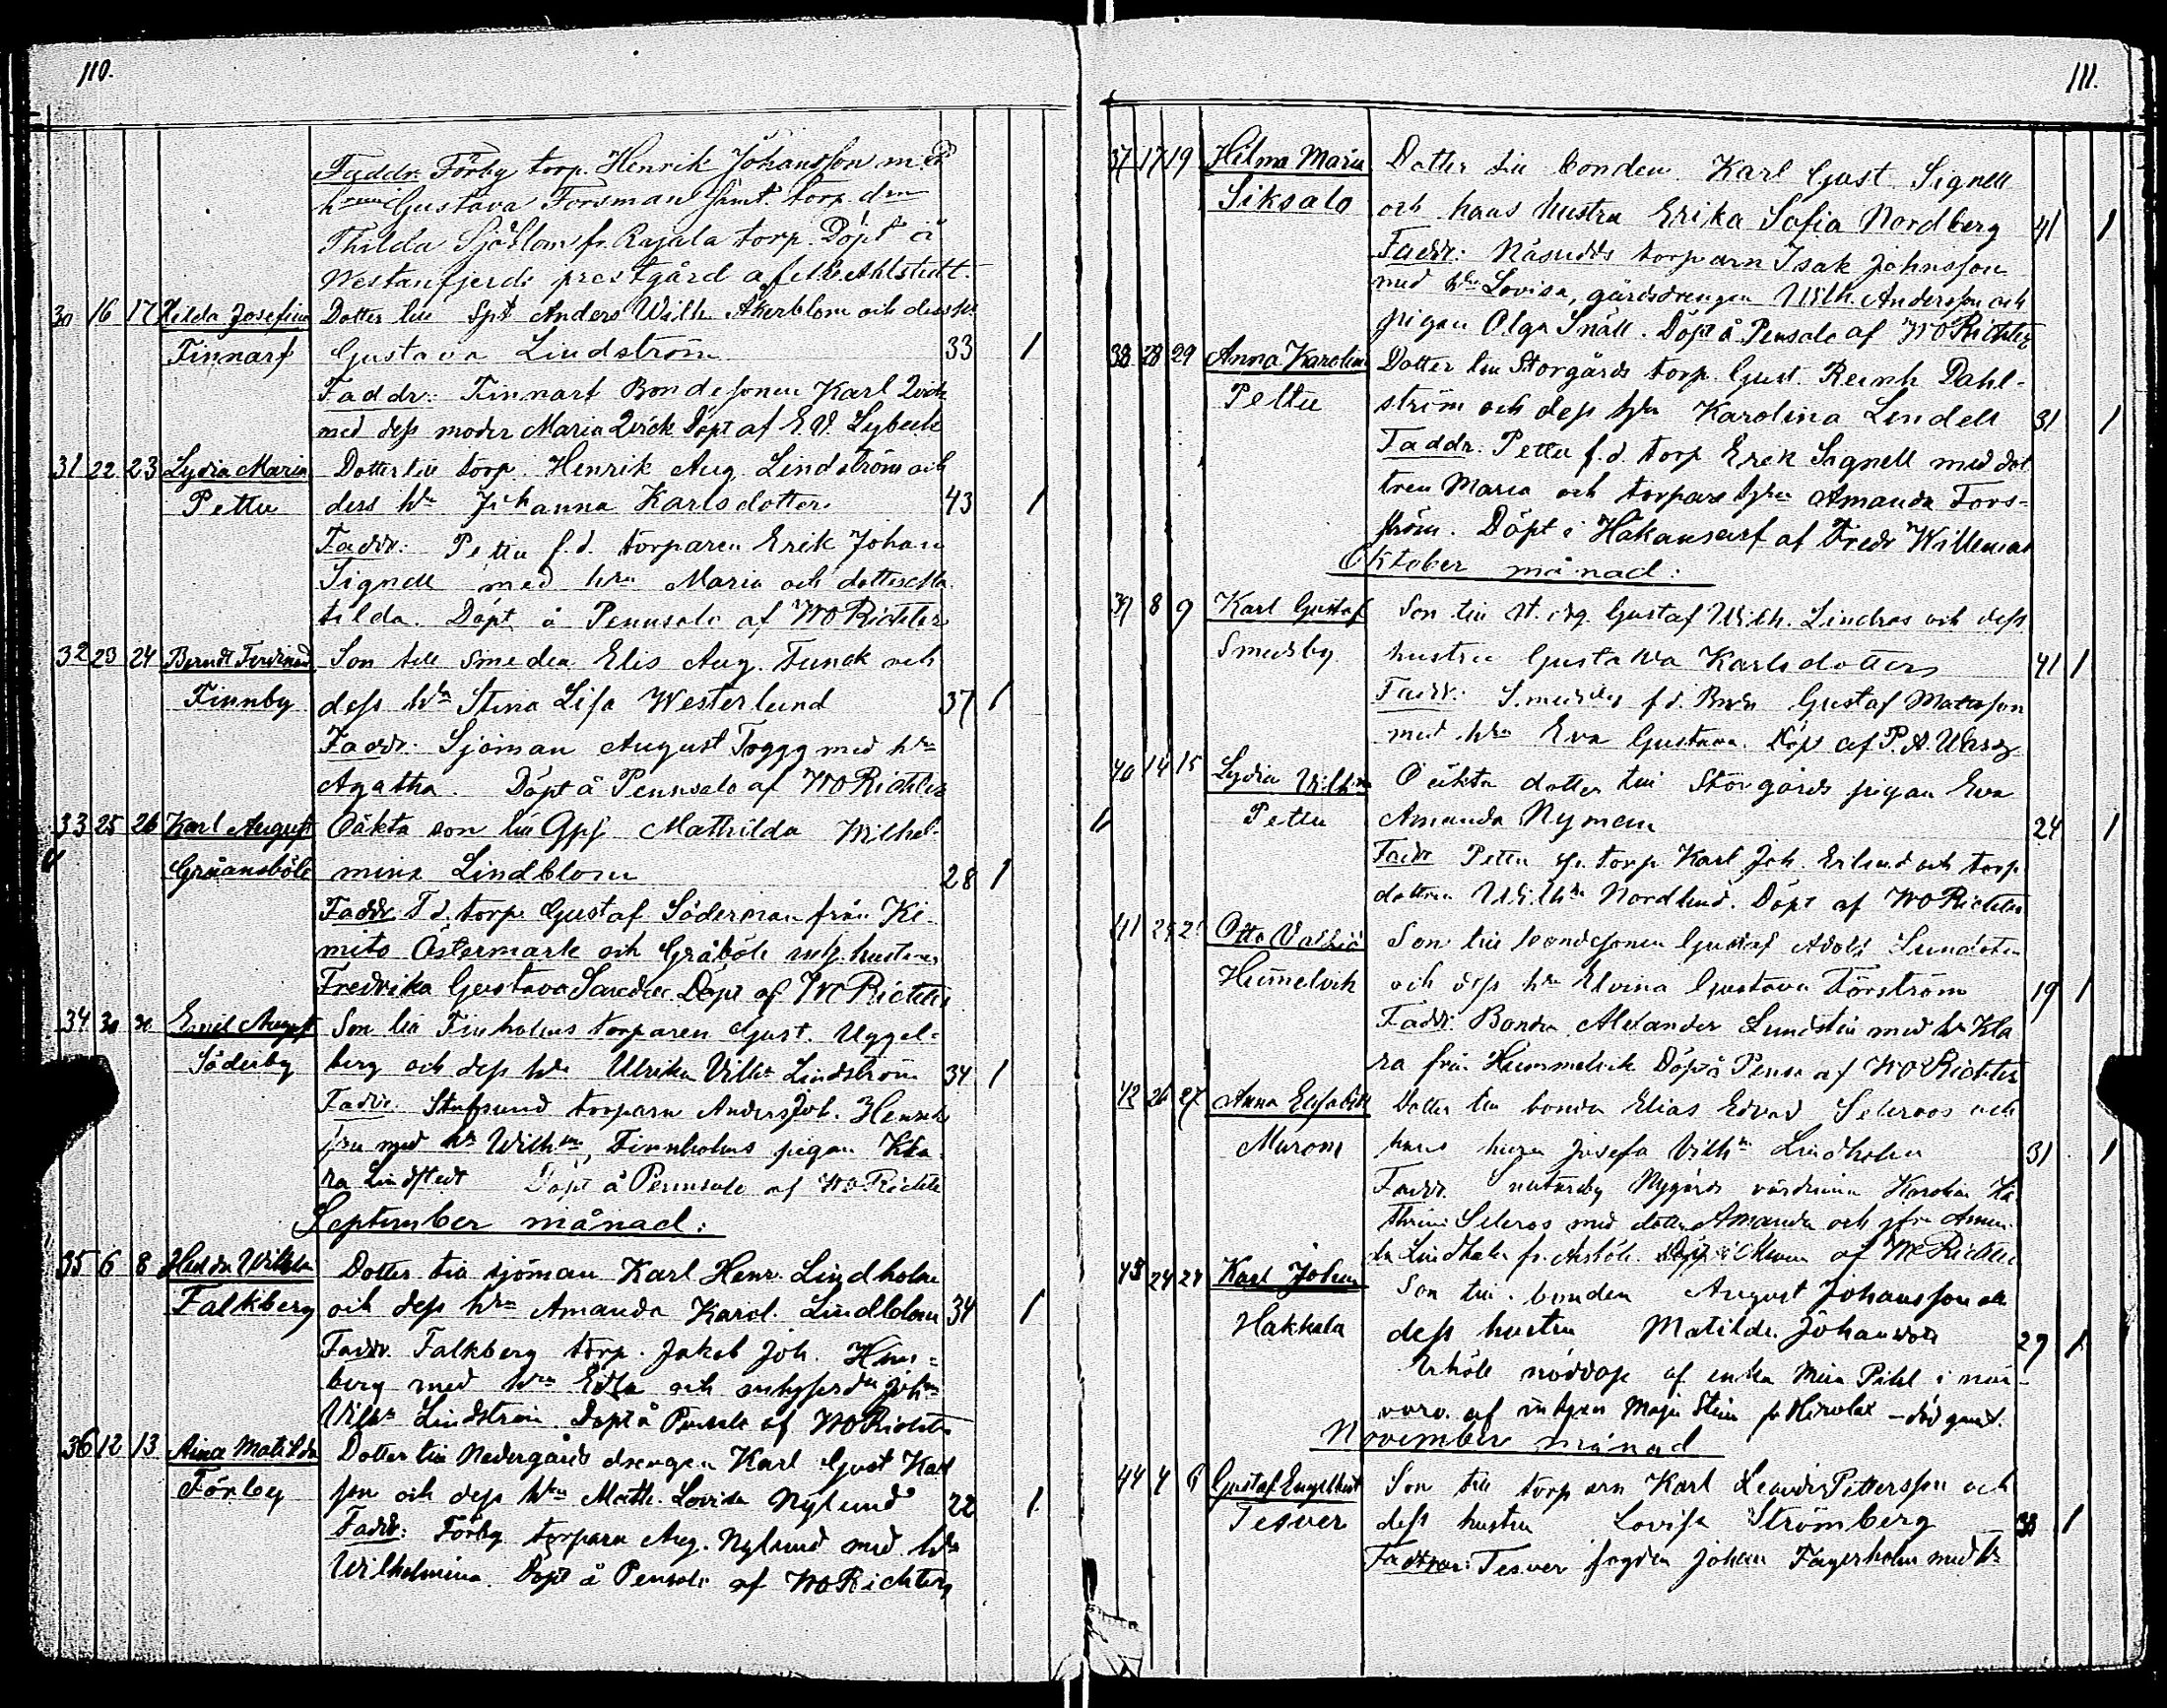 110.
Faddr. Förby torp. Henrik Johansson m. d.
Gustava Forsman samt torp. drn
Thilda Sjöblom fr. Rajala torp. Döpt å
Westanfjerds prestgård af Ahlstedt.
30 16 17 Hilda Josefina Dotter till Spt Anders Wilh. Åkerblom och dess
Finnarf Gustava Lindström 33 1
Faddr. Finnarf Bondesonen Karl
med dess moder Maria Döpt af E. V. Lybeck
31 22 23 Lydia Maria Dotter till torp. Henrik Aug. Lindström och
Pettu dess hru Johanna Karlsdotter 43 1
Faddr: Pettu f.d. torparen Erik Johan
Signell med hru Maria och dotter Ma
tilda. Döpt å Pennsalo af WO Richter
32 23 24 Berndt Ferdinand Son till Smeden Elis Aug. Funck och
Finnby dess hru Stina Lisa Westerlund 37 1
Faddr: Sjöman August Togg med hru
Agatha. Döpt å Pennsalo af WO Richter
33 25 26 Karl August Oäkta son till Mathilda Wilhel-
Gråansböle mina Lindblom 28 1
Faddr F.d. torp. Gustaf Söderman från Ki-
mito Östermark och Gråböle
Fredrika Gustava Döpt af WO Richter
34 30 30 Emil August Son till Finholms torparen Gust. Uggel-
Söderby berg och dess hru Ulrika Vilha Lindström 34 1
Faddr. torparn Anders Joh. Henriks
son med hr Wilhna, Finnholms pigan Kla
ra Lindstedt Döpt å Pennsalo af WO Richter
September månad:
35 6 8 Hulda Wilhelm Dotter till sjöman Karl Henr. Lindholm
Falkberg och dess hru Amanda Karol. Lindblom 34 1
Faddr. Falkberg torp. Jakob Joh.
berg med hru Edla och
Vilha Lindström Döpt å Pensalo af WO Richter
36 12 13 Aina Matilda Dotter till Nedergårds drengen Karl Gust Karl
Förby son och dess hru Math. Lovisa Nylund 22 1
Faddr: Förby torparn Aug. Nylund med hru
Wilhelmina. Döpt å Pensalo af WO Richter
111.
37 17 19 Hilma Maria Dotter till bonden Karl Gust. Signell
Siksalo och hans hustru Erika Sofia Nordberg 41 1
Faddr: Näsudds torparn Isak Johnsson
med hru Lovisa, gårdsdrengen Wilh. Andersson och
pigan Olga Snäll. Döpt å Pensalo af WO Richter
38 28 29 Anna Karolina Dotter till Storgårds torp. Gust. Reinh Dahl-
Pettu ström och dess hru Karolina Lindell 31 1
Faddr. Pettu f.d. torp Erik Signell med dot
tren Maria och torpare hru Amanda Fors-
ström. Döpt i Håkansarf af Fredr Willenius
Oktober månad:
39 8 9 Karl Gustaf Son till Gustaf Wilh. Lindros och dess
Smedsby hustru Gustava Karlsdotter 41 1
Faddr: Smedsby f.d. Gustaf Matsson
med hru Eva Gustava. Döpt af P. A.
40 14 15 Lydia Vilhma Oäkta dotter till Storgårds pigan Eva
Pettu Amanda Nyman 24 1
Faddr Pettu torp Karl Joh. Erlund och torp
dottren Wilhna Nordlund. Döpt af WO Richter
41 Otto Son till bondesonen Gustaf Adolf Lundsten
Himmelvik och dess hru Elvina Gustava Förström 19 1
Faddr. Bonden Alexander Lundsten med hr Kla
ra från Himmelvik Döpt å Pensa af WO Richter
42 26 27 Anna Elisabeth Dotter till bonden Elias Edvard och
Murom hans Josefa Vilhna Lindholm 31 1
Faddr. Nygårds värdinna Karolina Ka
thrina med dotter Amanda och Aman
da Lindholm fr. Döpt i af WO Richter
43 24 24 Karl Johan Son till bonden August Johansson och
Hakkala dess hustru Matilda Johansdotr 29 1
Erhöll nöddop af enkan Mia Pihl i när-
varo af Maja Stina fr
November månad
44 4 6 Gustaf Engelbert Son till torparn Karl Leander Pettersson och
Tesver dess hustru Lovisa Strömberg 38 1
Faddrar: Tesver fogden Johan Fagerholm med hr